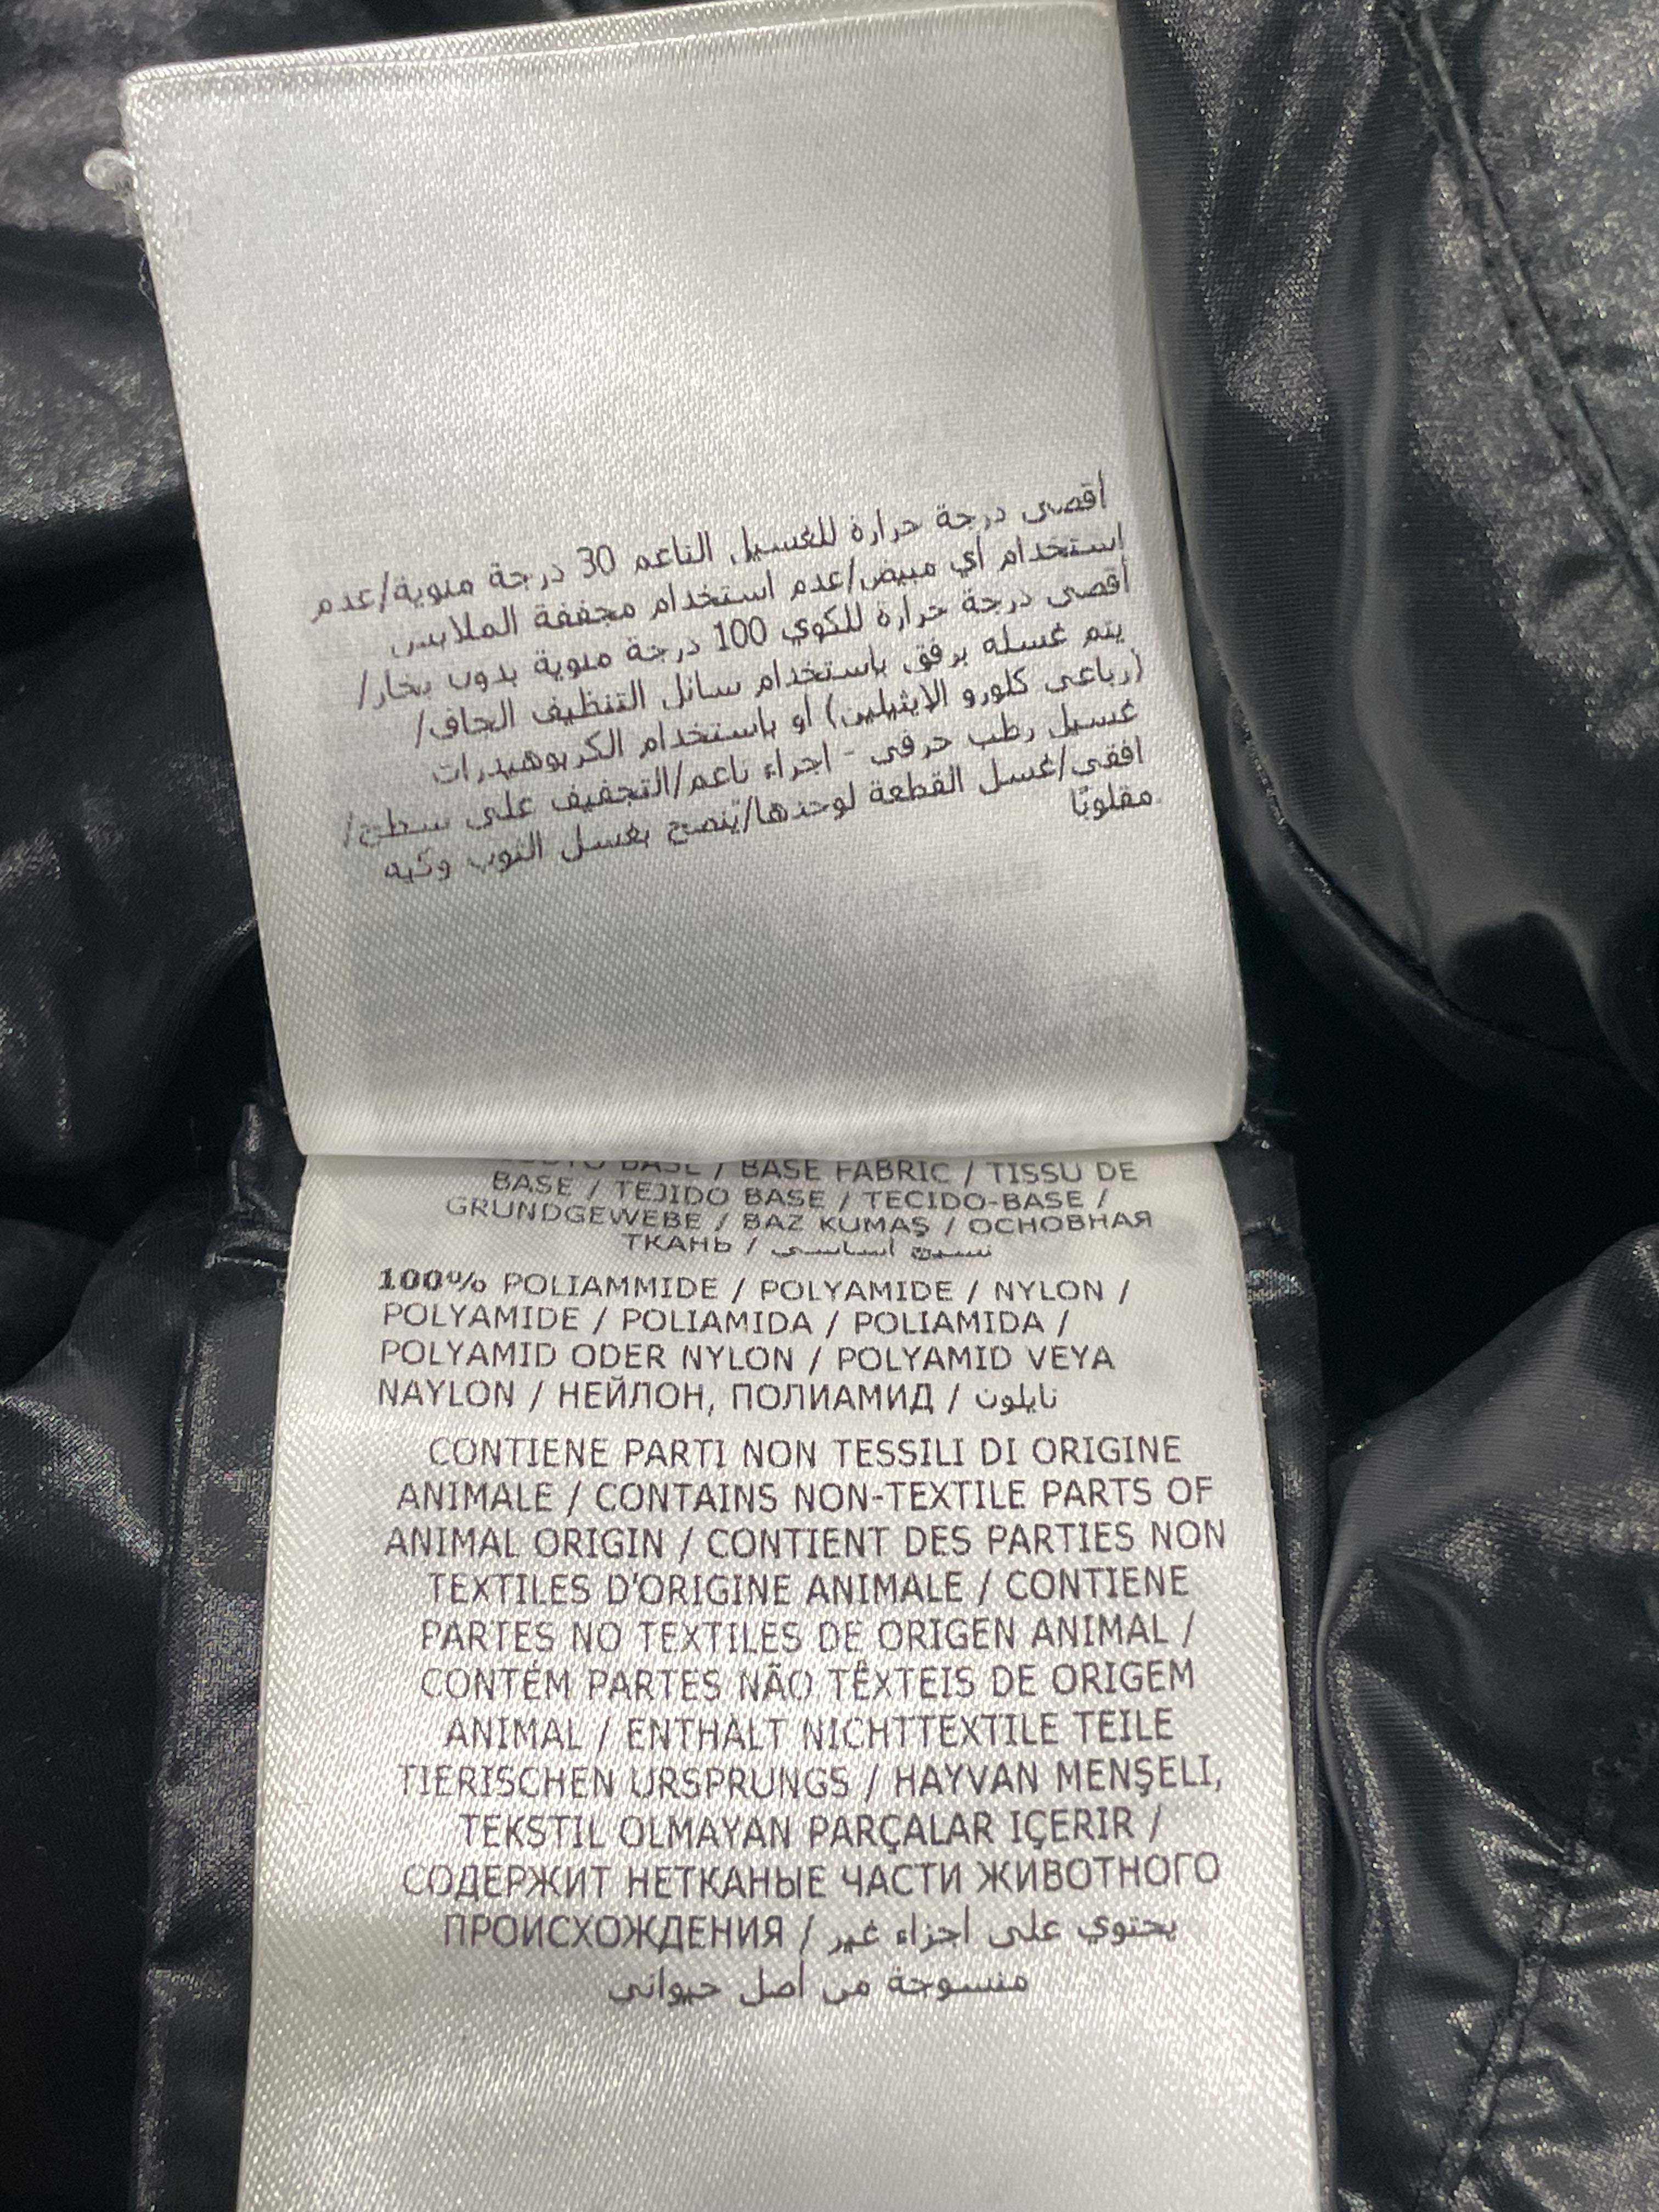 أقصى درجة حرارة للغسيل الناعم 30 درجة مئوية/عدم
استخدام أي مبيض/عدم استخدام مجففة الملابس
أقصى درجة حرارة للكوي 100 درجة مئوية بدون بخار/
يتم غسله برفق باستخدام سائل التنظيف الجاف/
(رباعي كلورو الايثيلين) أو باستخدام الكربوهيدرات
غسيل رطب حرفي - اجراء ناعم/التجفيف على سطح/
افقي/غسل القطعة لوحدها/يُنصح بغسل الثوب وكيه
مقلوبًا
BASE / BASE FABRIC / TISSU DE
BASE / TEJIDO BASE / TECIDO-BASE /
GRUNDGEWEBE / BAZ KUMAŞ / ОСНОВНАЯ
ТКАНЬ / نسيج أساسي
100% POLIAMMIDE / POLYAMIDE / NYLON /
POLYAMIDE / POLIAMIDA / POLIAMIDA /
POLYAMID ODER NYLON / POLYAMID VEYA
NAYLON / НЕЙЛОН, ПОЛИАМИД / نايلون
CONTIENE PARTI NON TESSILI DI ORIGINE
ANIMALE / CONTAINS NON-TEXTILE PARTS OF
ANIMAL ORIGIN / CONTIENT DES PARTIES NON
TEXTILES D'ORIGINE ANIMALE / CONTIENE
PARTES NO TEXTILES DE ORIGEN ANIMAL /
CONTÉM PARTES NÃO TÊXTEIS DE ORIGEM
ANIMAL / ENTHALT NICHTTEXTILE TEILE
TIERISCHEN URSPRUNGS / HAYVAN MENŞELI,
TEKSTIL OLMAYAN PARÇALAR IÇERIR /
СОДЕРЖИТ НЕТКАНЫЕ ЧАСТИ ЖИВОТНОГО
ПРОИСХОЖДЕНИЯ / يحتوي على أجزاء غير
منسوجة من أصل حيواني